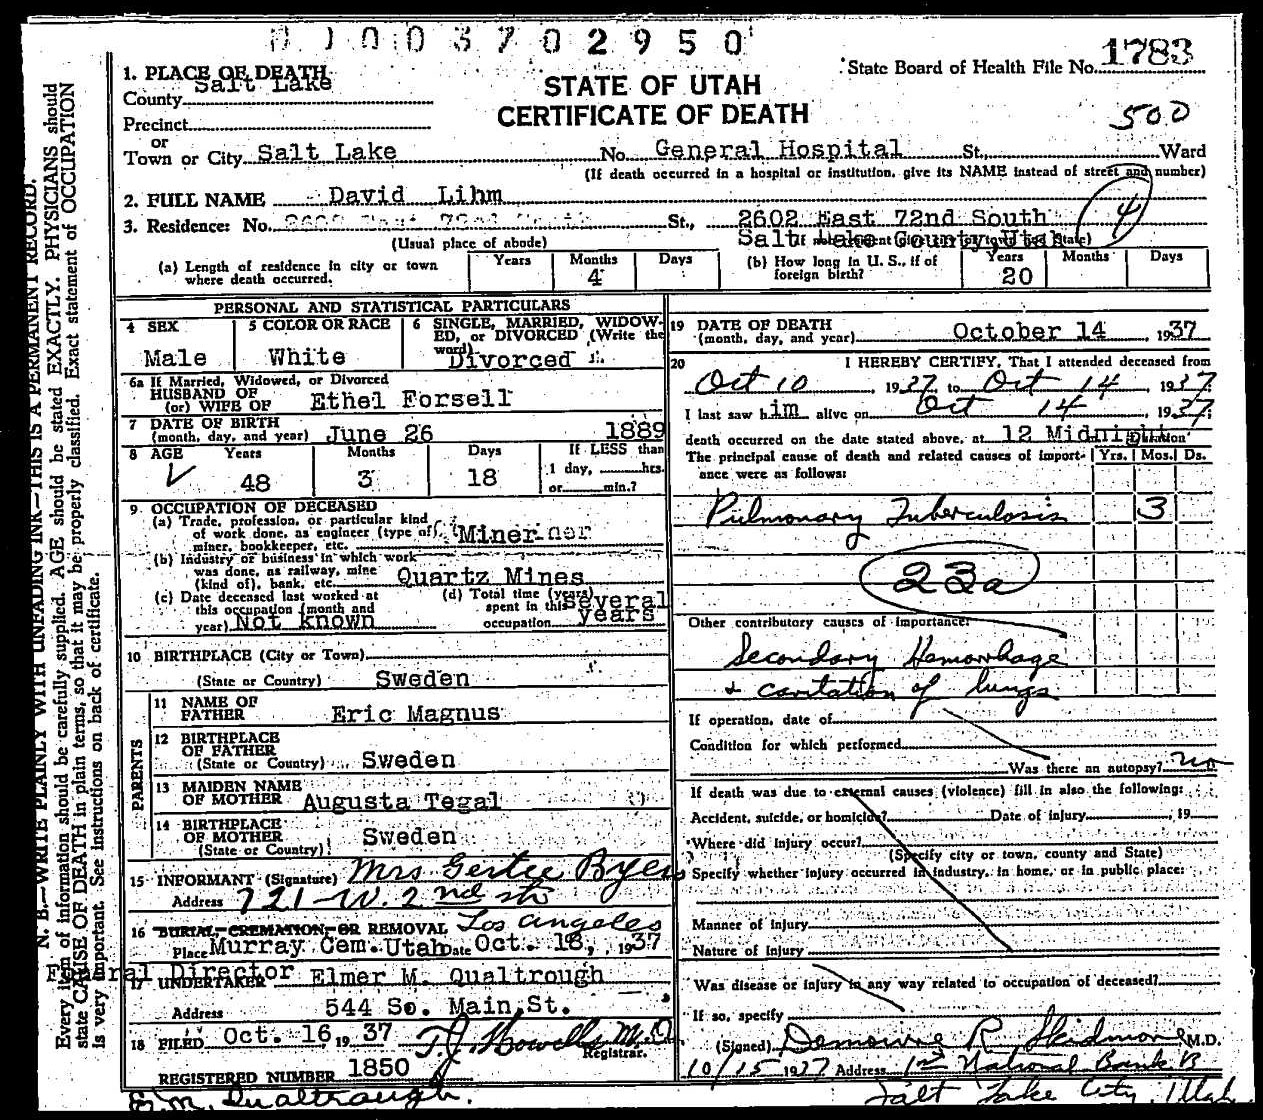 0100370 2950
1783
State Board of Health File No.
500
STATE OF UTAH
CERTIFICATE OF DEATH
1. PLACE OF DEATH
County Salt Lake
Precinct
or
Town or City Salt Lake No. General Hospital St, Ward
(If death occurred in a hospital or institution, give its NAME instead of street and number)
2. FULL NAME David Lihm
3. Residence: No. 2602 East 72nd South St., 2602 East 72nd South
4
Salt Lake County, Utah
(Usual place of abode)
(a) Length of residence in city or town where death occurred. Years Months 4 Days
(b) How long in U. S., if of foreign birth? Years 20 Months Days
PERSONAL AND STATISTICAL PARTICULARS
4 SEX Male
5 COLOR OR RACE White
6 SINGLE, MARRIED, WIDOWED, or DIVORCED (Write the word) Divorced
6a If Married, Widowed, or Divorced
HUSBAND OF
(or) WIFE OF Ethel Forsell
7 DATE OF BIRTH
(month, day, and year) June 26 1889
8 AGE Years 48 Months 3 Days 18 If LESS than
1 day, hrs.
or min.?
9. OCCUPATION OF DECEASED
(a) Trade, profession, or particular kind
of work done, as engineer (type of),
miner, bookkeeper, etc. Miner
(b) Industry or business in which work
was done, as railway, mine
(kind of), bank, etc. Quartz Mines
(c) Date deceased last worked at
this occupation (month and
year) Not known
(d) Total time (years)
spent in this
occupation several years
10 BIRTHPLACE (City or Town)
(State or Country) Sweden
PARENTS
11 NAME OF
FATHER Eric Magnus
12 BIRTHPLACE
OF FATHER
(State or Country) Sweden
13 MAIDEN NAME
OF MOTHER Augusta Tegal
14 BIRTHPLACE
OF MOTHER
(State or Country) Sweden
15 INFORMANT (Signature) Mrs Gertee Byers
Address 721-W. 2nd st
16 BURIAL, CREMATION, OR REMOVAL Los Angeles
Place Murray Cem. Utah Date Oct. 18, 1937
Funeral Director
17 UNDERTAKER Elmer M. Qualtrough
Address 544 So. Main St.
18 FILED Oct. 16, 1937 T.J. Howells M.D.
Registrar.
REGISTERED NUMBER 1850
E. M. Qualtrough.
19 DATE OF DEATH
(month, day, and year) October 14 1937
20 I HEREBY CERTIFY, That I attended deceased from
Oct 10, 1937 to Oct 14, 1937.
I last saw him alive on Oct 14, 1937;
death occurred on the date stated above, at 12 Midnight
Duration
The principal cause of death and related causes of importance were as follows: Yrs. Mos. Ds.
Pulmonary Tuberculosis 3
23a
Other contributory causes of importance:
Secondary Hemorrhage
+ cavitation of lungs
If operation, date of
Condition for which performed
Was there an autopsy? no
If death was due to external causes (violence) fill in also the following:
Accident, suicide, or homicide? Date of injury, 19
Where did injury occur?
(Specify city or town, county and State)
Specify whether injury occurred in industry, in home, or in public place:
Manner of injury
Nature of injury
Was disease or injury in any way related to occupation of deceased?
If so, specify
(Signed) R Skidmore M.D.
10/15 1937 Address 1st National Bank B
Salt Lake City, Utah
N. B.—WRITE PLAINLY WITH UNFADING INK—THIS IS A PERMANENT RECORD.
Every item of information should be carefully supplied. AGE should be stated EXACTLY. PHYSICIANS should
state CAUSE OF DEATH in plain terms, so that it may be properly classified. Exact statement of OCCUPATION
is very important. See instructions on back of certificate.